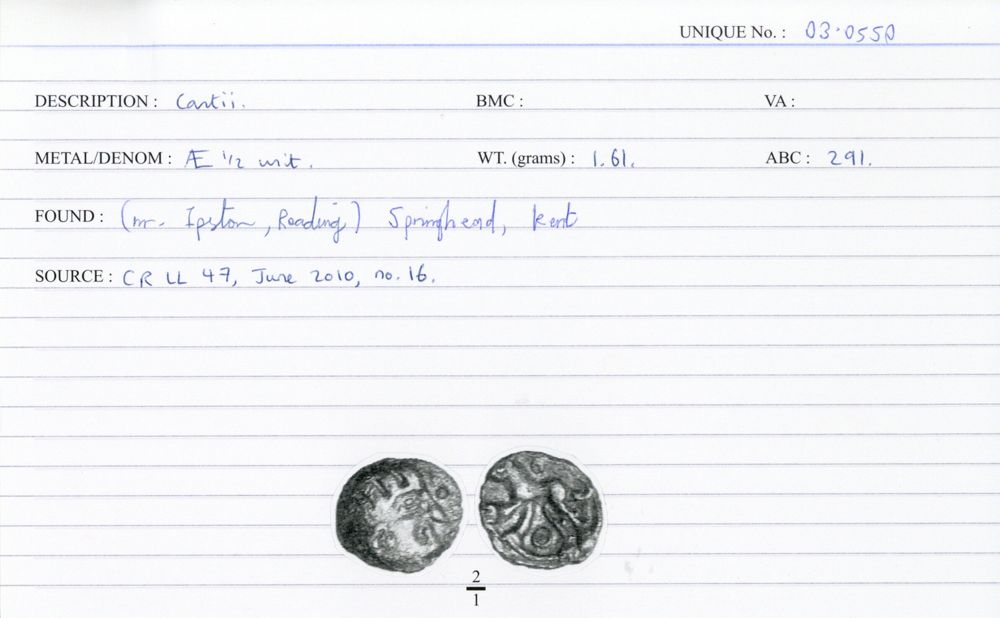 UNIQUE No. : 03.0550
DESCRIPTION : Cantii. BMC : VA :
METAL/DENOM : Æ 1/2 unit. WT. (grams) : 1.61. ABC : 291.
FOUND : (nr. Ipston, Reading) Springhead, Kent
SOURCE : CR LL 47, June 2010, no. 16.
2
1